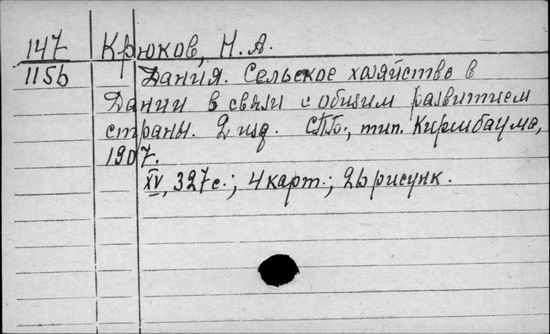 147 Крюков, Н. А.
115б Дания. Сельское хозяйство в
Дании в связи с общим развитием
страны. 2 изд. СПБ., тип. Киршбаума,
1907.
XV, 327 с.; 4 карт.; 26 рисунк.